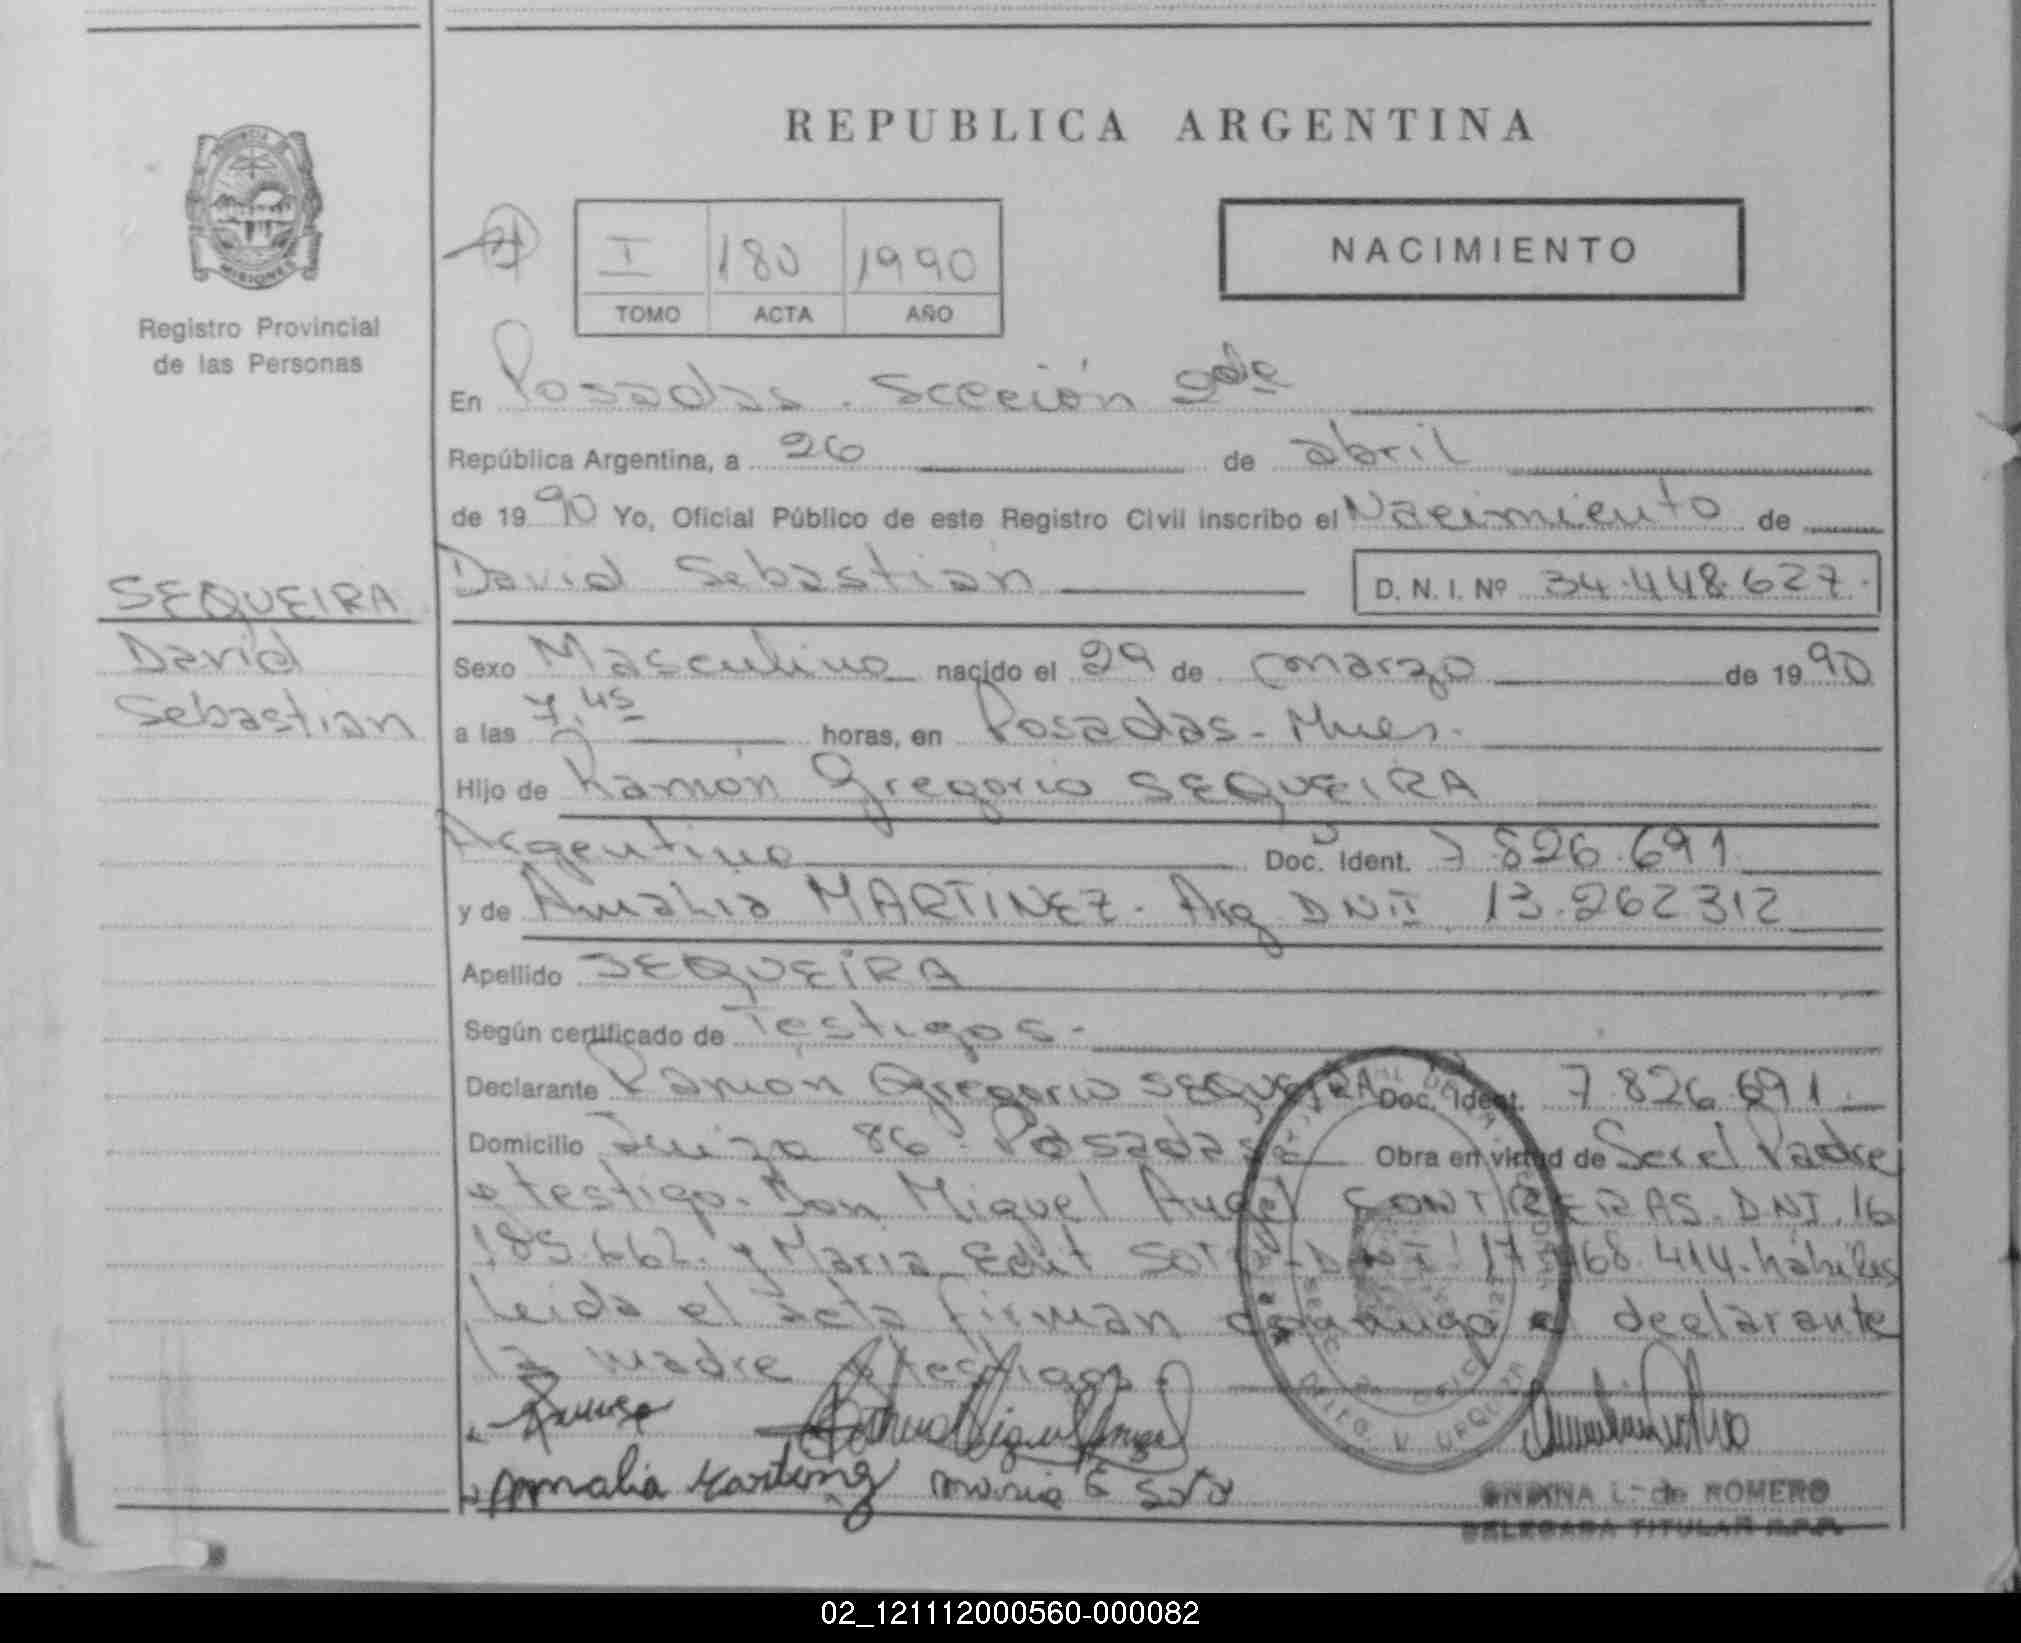 REPUBLICA ARGENTINA
PROVINCIA
MISIONES
Registro Provincial
de las Personas
I 180 1990
TOMO ACTA AÑO
NACIMIENTO
En Posadas. Sección 2da
República Argentina, a 26 de abril
de 1990 Yo, Oficial Público de este Registro Civil inscribo el Nacimiento de
David Sebastian D. N. I. Nº 34.448.627.
SEQUEIRA
David
Sebastian
Sexo Masculino nacido el 29 de marzo de 1990
a las 7,45 horas, en Posadas - Mnes.
Hijo de Ramón Gregorio SEQUEIRA
Argentino Doc. Ident. 7.826.691
y de Amalia MARTINEZ. Arg DNI 13.262312
Apellido SEQUEIRA
Según certificado de Testigos.
Declarante Ramón Gregorio SEQUEIRA Doc. Ident. 7.826.691
Domicilio 86 - Posadas Obra en virtud de Ser el Padre
testigo. Don Miguel Angel CONTRERAS. DNI. 16
185.662. y Maria Edit SOTO - DNI 17.168.414. hábiles
leida el acta firman conmigo el declarante
la madre y testigos.
Amalia Martinez Maria E Soto
ONDINA L. de ROMERO
DELEGADA TITULAR R.P.P.
02_121112000560-000082